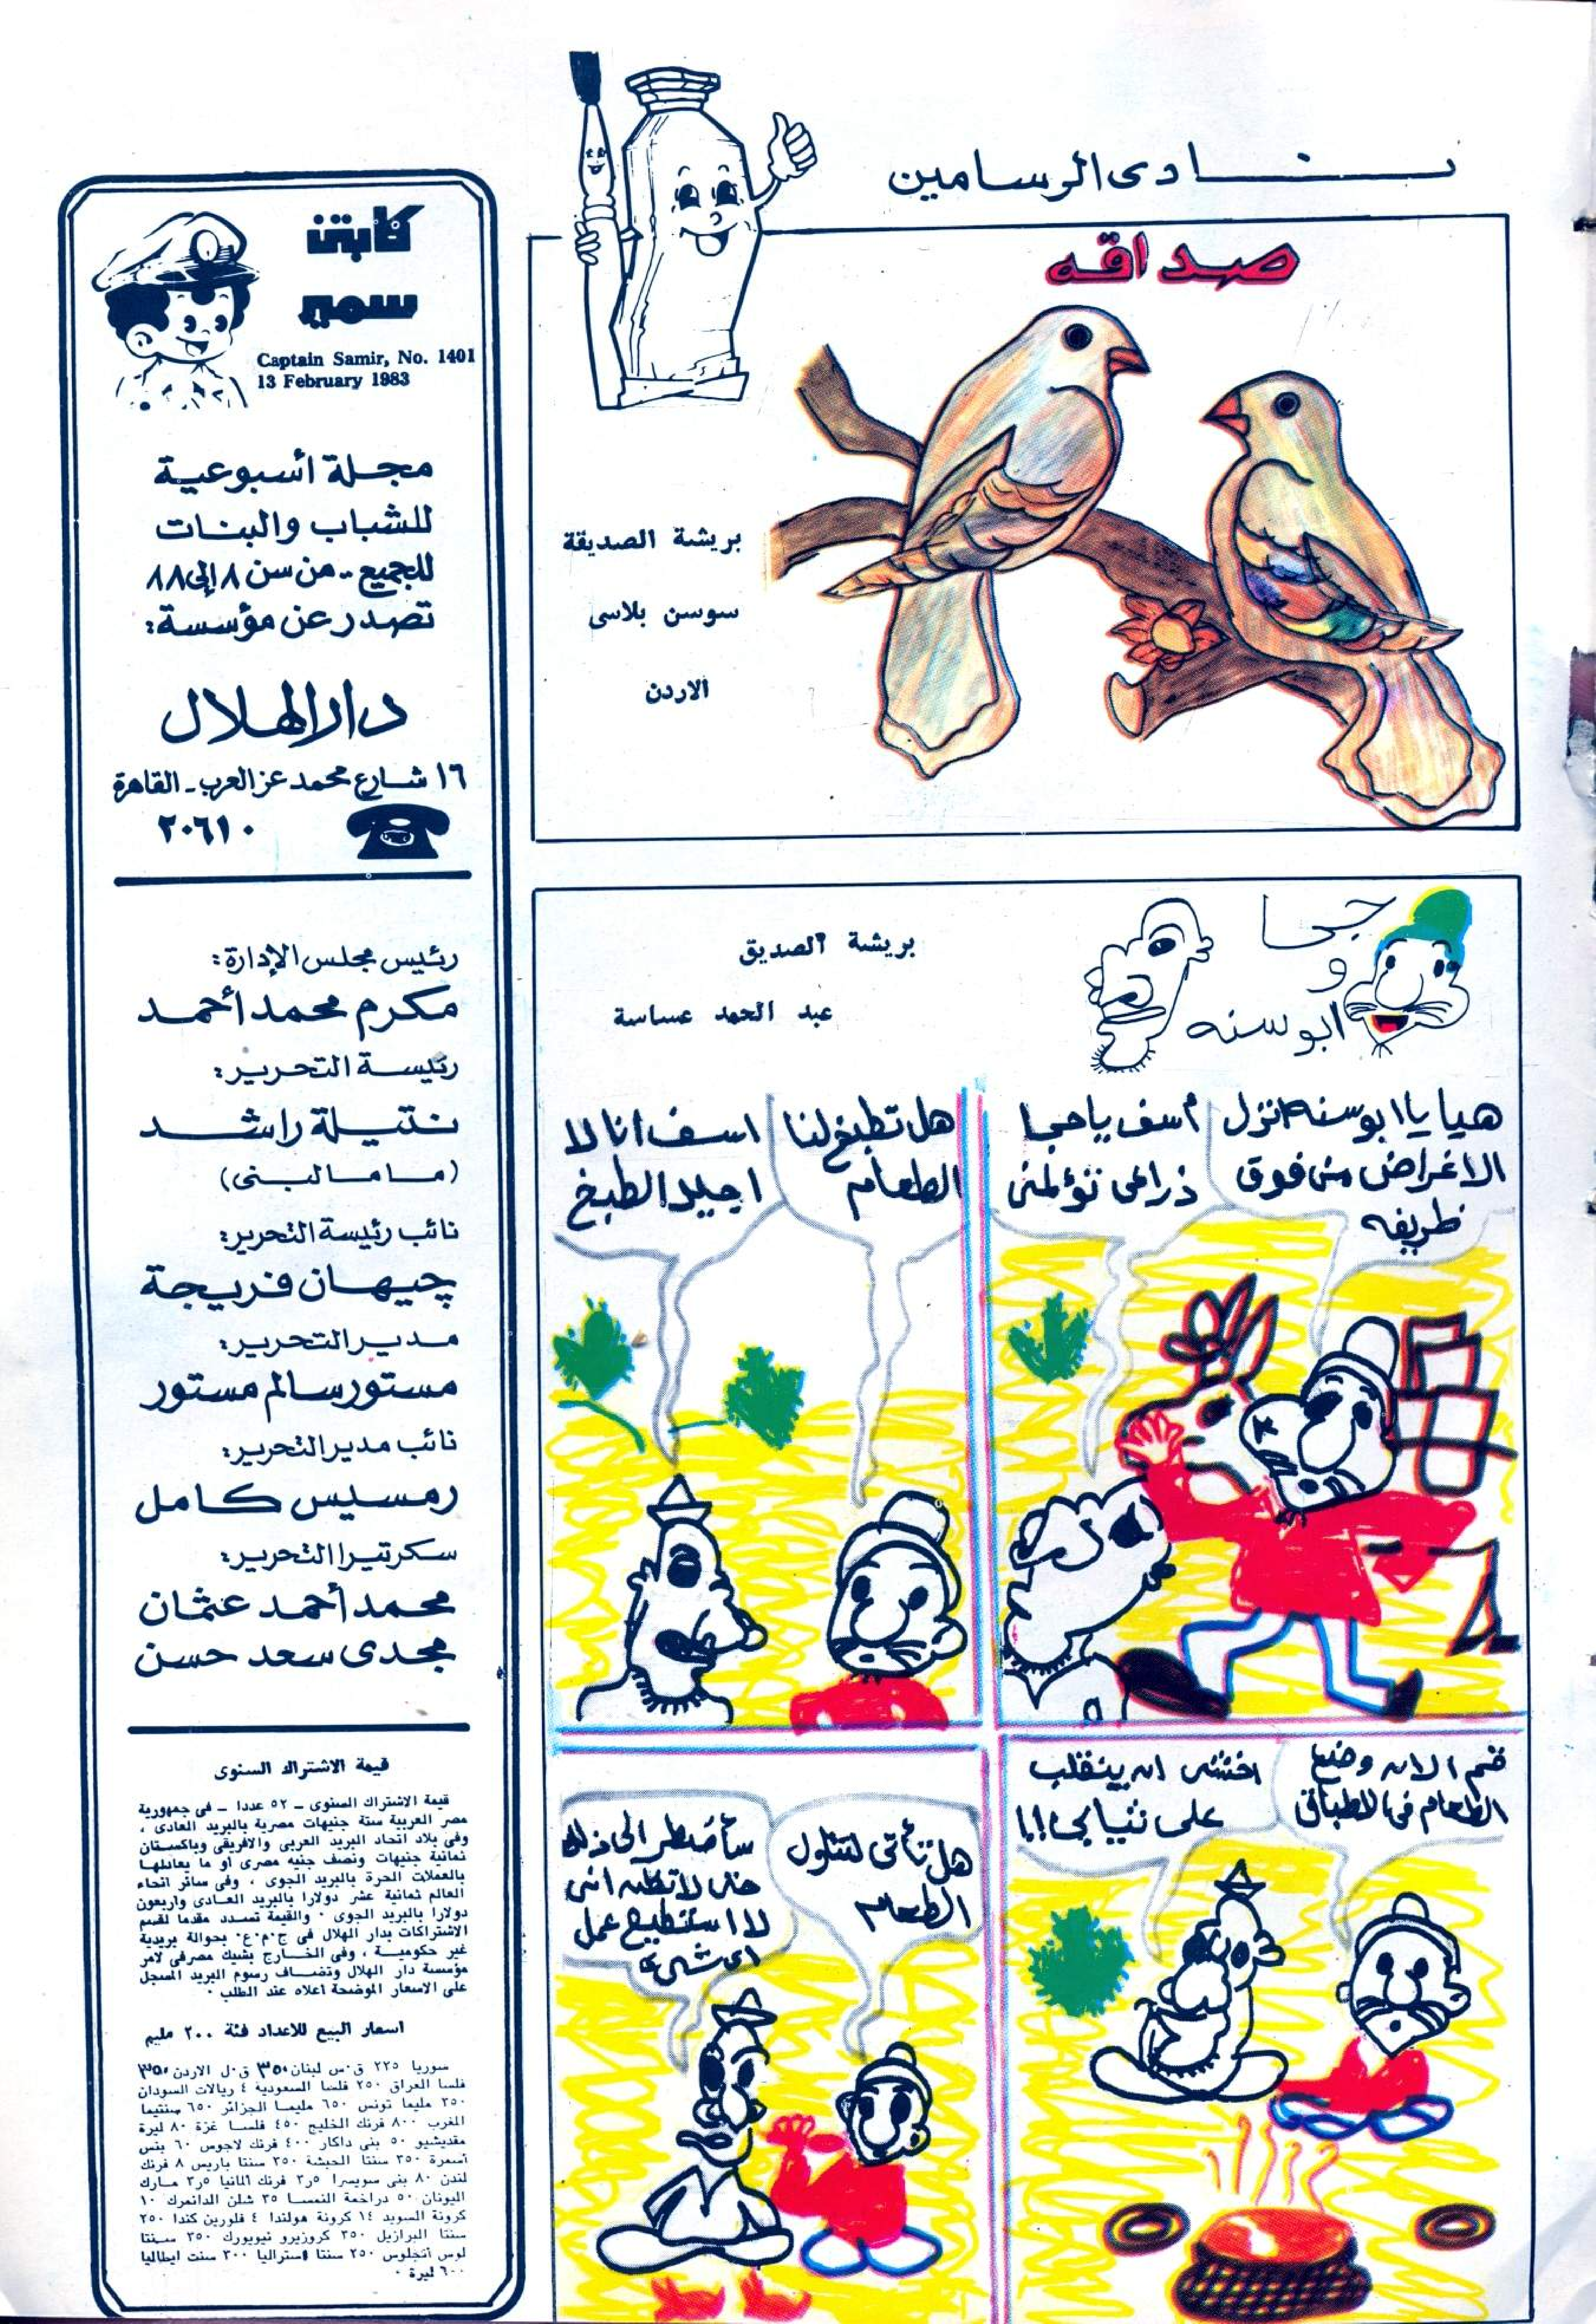 نادى الرسامين
صداقه
بريشة الصديقة
سوسن بلاسى
الاردن
جحا
و
ابو سنه
بريشة الصديق
عبد الحمد عساسة
هيا يا ابو سنه انزل
الاغراض من فوق
ظريفه
آسف يا جحا
ذراعى تؤلمنى
هل تطبخ لنا
الطعام
اسف انا لا
اجيد الطبخ
قم الان وضع
الطعام فى الاطباق
اخشى ان ينقلب
على ثيابى!!
هل تأتى لتناول
الطعام
سأضطر الى ذلك
حتى لا تظن انى
لا استطيع عمل
اى شىء
كابتن
سمير
Captain Samir, No. 1401
13 February 1983
مجلة أسبوعية
للشباب والبنات
للجميع.. من سن ٨ إلى ٨٨
تصدر عن مؤسسة:
دار الهلال
١٦ شارع محمد عز العرب - القاهرة
٢٠٦١٠
رئيس مجلس الإدارة:
مكرم محمد أحمد
رئيسة التحرير:
نتيلة راشد
(ماما لبنى)
نائب رئيسة التحرير:
چيهان فريجة
مدير التحرير:
مستور سالم مستور
نائب مدير التحرير:
رمسيس كامل
سكرتيرا التحرير:
محمد أحمد عثمان
مجدى سعد حسن
قيمة الاشتراك السنوى
قيمة الاشتراك السنوى ـ ٥٢ عددا ـ فى جمهورية
مصر العربية ستة جنيهات مصرية بالبريد العادى ،
وفى بلاد اتحاد البريد العربى والافريقى وباكستان
ثمانية جنيهات ونصف جنيه مصرى أو ما يعادلها
بالعملات الحرة بالبريد الجوى ، وفى سائر انحاء
العالم ثمانية عشر دولارا بالبريد العادى واربعون
دولارا بالبريد الجوى . والقيمة تسدد مقدما لقسم
الاشتراكات بدار الهلال فى ج.م.ع. بحوالة بريدية
غير حكومية ، وفى الخارج بشيك مصرفى لامر
مؤسسة دار الهلال وتضاف رسوم البريد المسجل
على الاسعار الموضحة اعلاه عند الطلب .
اسعار البيع للاعداد فئة ٢٠٠ مليم
سوريا ٢٢٥ ق.س لبنان ٣٥٠ ق.ل الاردن ٣٥٠
فلسا العراق ٢٥٠ فلسا السعودية ٤ ريالات السودان
٣٥٠ مليما تونس ٦٥٠ مليما الجزائر ٦٥٠ سنتيما
المغرب ٨٠٠ فرنك الخليج ٤٥٠ فلسا غزة ٨٠ ليرة
مقديشيو ٥٠ بنى داكار ٤٠٠ فرنك لاجوس ٦٠ بنس
أسمرة ٣٥٠ سنتا الحبشة ٣٥٠ سنتا باريس ٨ فرنك
لندن ٨٠ بنى سويسرا ٣٫٥ فرنك المانيا ٣٫٥ مارك
اليونان ٥٠ دراخمة النمسا ٣٥ شلن الدانمرك ١٠
كرونة السويد ١٤ كرونة هولندا ٤ فلورين كندا ٢٥٠
سنتا البرازيل ٣٥٠ كروزيرو نيويورك ٣٥٠ سنتا
لوس أنجلوس ٢٥٠ سنتا استراليا ٣٠٠ سنت ايطاليا
٦٠٠ ليرة .